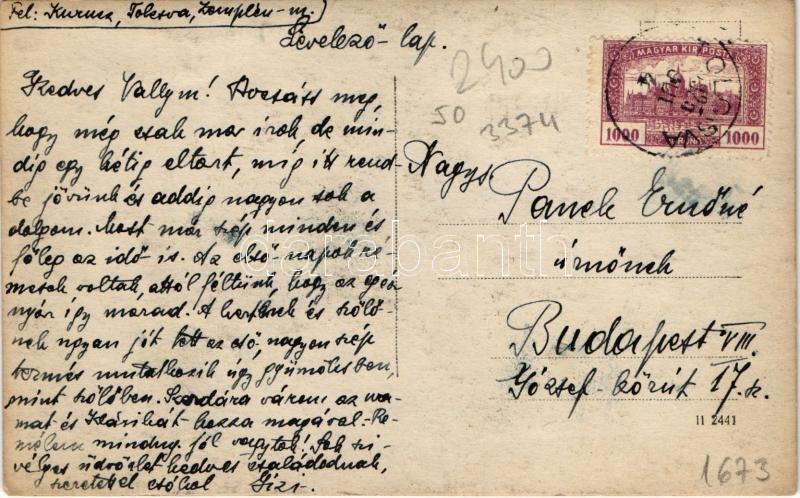 Fel: Kurucz, Tolcsva, Zemplén-m.
Levelező-lap.
Kedves Vallym! Bocsáss meg,
hogy még csak mar irok, de min-
dig egy hétig eltart, míg itt rend-
be jövünk és addig nagyon sok a
dolgom. Most már szép minden és
főleg az idő is. Az első napok ré-
mesek voltak, attól féltünk, hogy az egész
nyár így marad. A kertnek és szőlő-
nek ugyan jót tett az eső, nagyon szép
termés mutatkozik úgy gyümölcsben,
mint szőlőben. Szerdára várom az
mat és hozza magával. Re-
mélem mindny. jól vagytok! Sok szí-
vélyes üdvözlet kedves családodnak,
szeretettel csókol Gizi.
2400
50
3374
MAGYAR KIR. POSTA
1000 1000
Nagys
Panek Ernőné
úrnőnek
Budapest VIII.
József-körút 17. sz.
II 2441
1673
darabanth